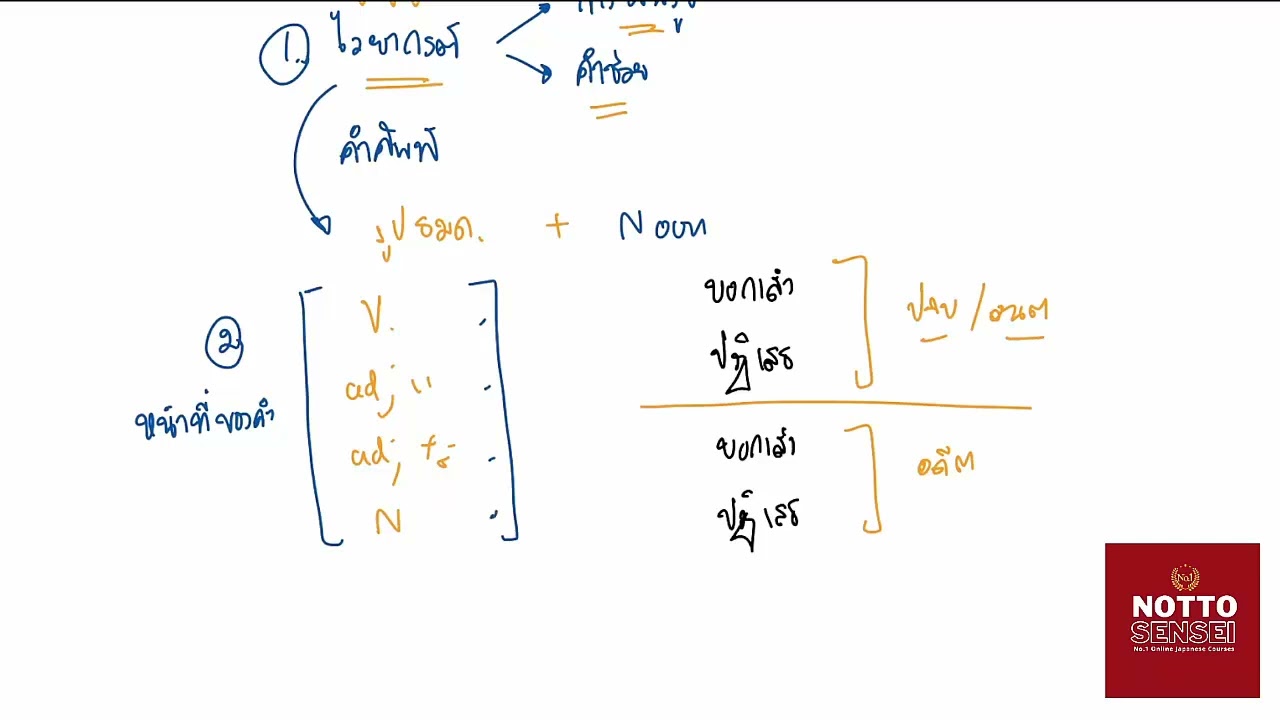 1. ไวยากรณ์
คำช่วย
คำศัพท์
รูปธมด. + Noun
2 หน้าที่ของคำ
V.
adj い
adj な
N
บอกเล่า
ปฏิเสธ
ปจบ / อนต
บอกเล่า
ปฏิเสธ
อดีต
No.1
NOTTO
SENSEI
No.1 Online Japanese Courses